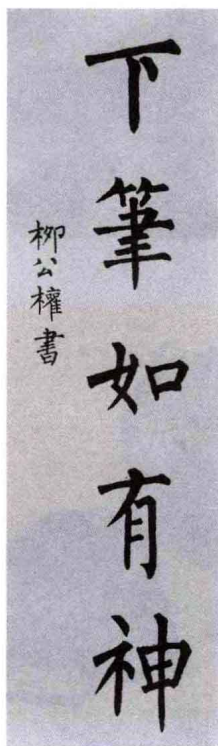 下筆如有神
柳公權書